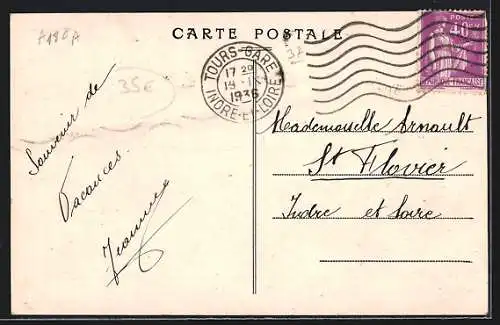 A198A
CARTE POSTALE
35€
32
TOURS-GARE
17 20
19
1936
INDRE-ET-LOIRE
POSTES
40c
FRANÇAISE
Souvenir de
Vacances.
Jeannine
Mademoiselle Arnault
St Flovier
Indre et Loire